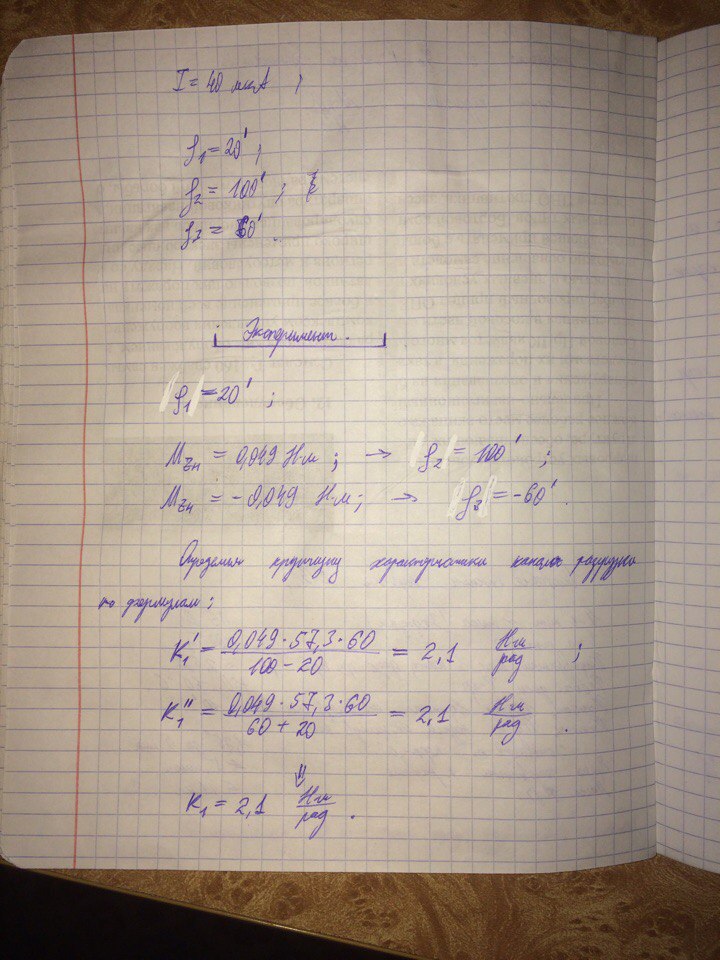 I = 40 мкА ;
ρ₁ = 20' ;
ρ₂ = 100' ;
ρ₃ = 60' .
Эксперимент.
|ρ₁| = 20' ;
M_zн = 0,049 Н·м ; → |ρ₂| = 100' ;
M_zн = -0,049 Н·м ; → |ρ₃| = -60' .
Определим крутизну характеристики канала разгрузки
по формулам ;
K₁' = (0,049 · 57,3 · 60)/(100 - 20) = 2,1 Нм/рад ;
K₁'' = (0,049 · 57,3 · 60)/(60 + 20) = 2,1 Нм/рад .
⇓
K₁ = 2,1 Нм/рад .